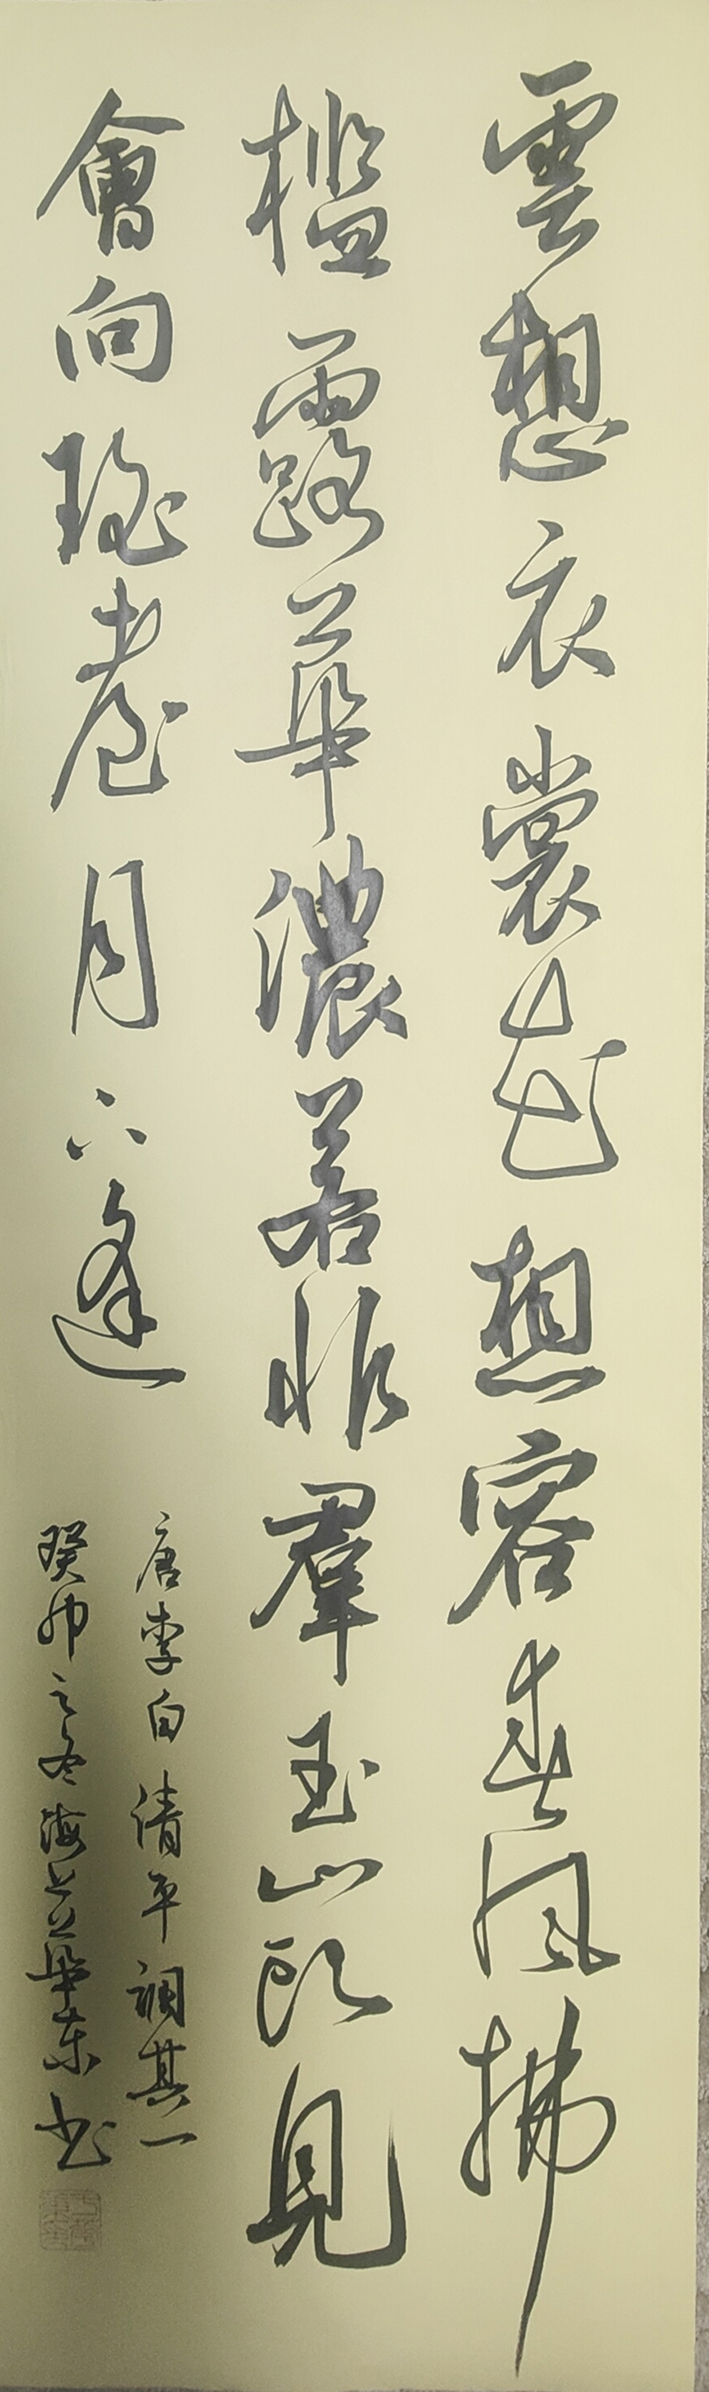 雲想衣裳花想容春風拂
檻露華濃若非羣玉山頭見
會向瑤臺月下逢
唐李白清平調其一
癸卯之冬海上華東书